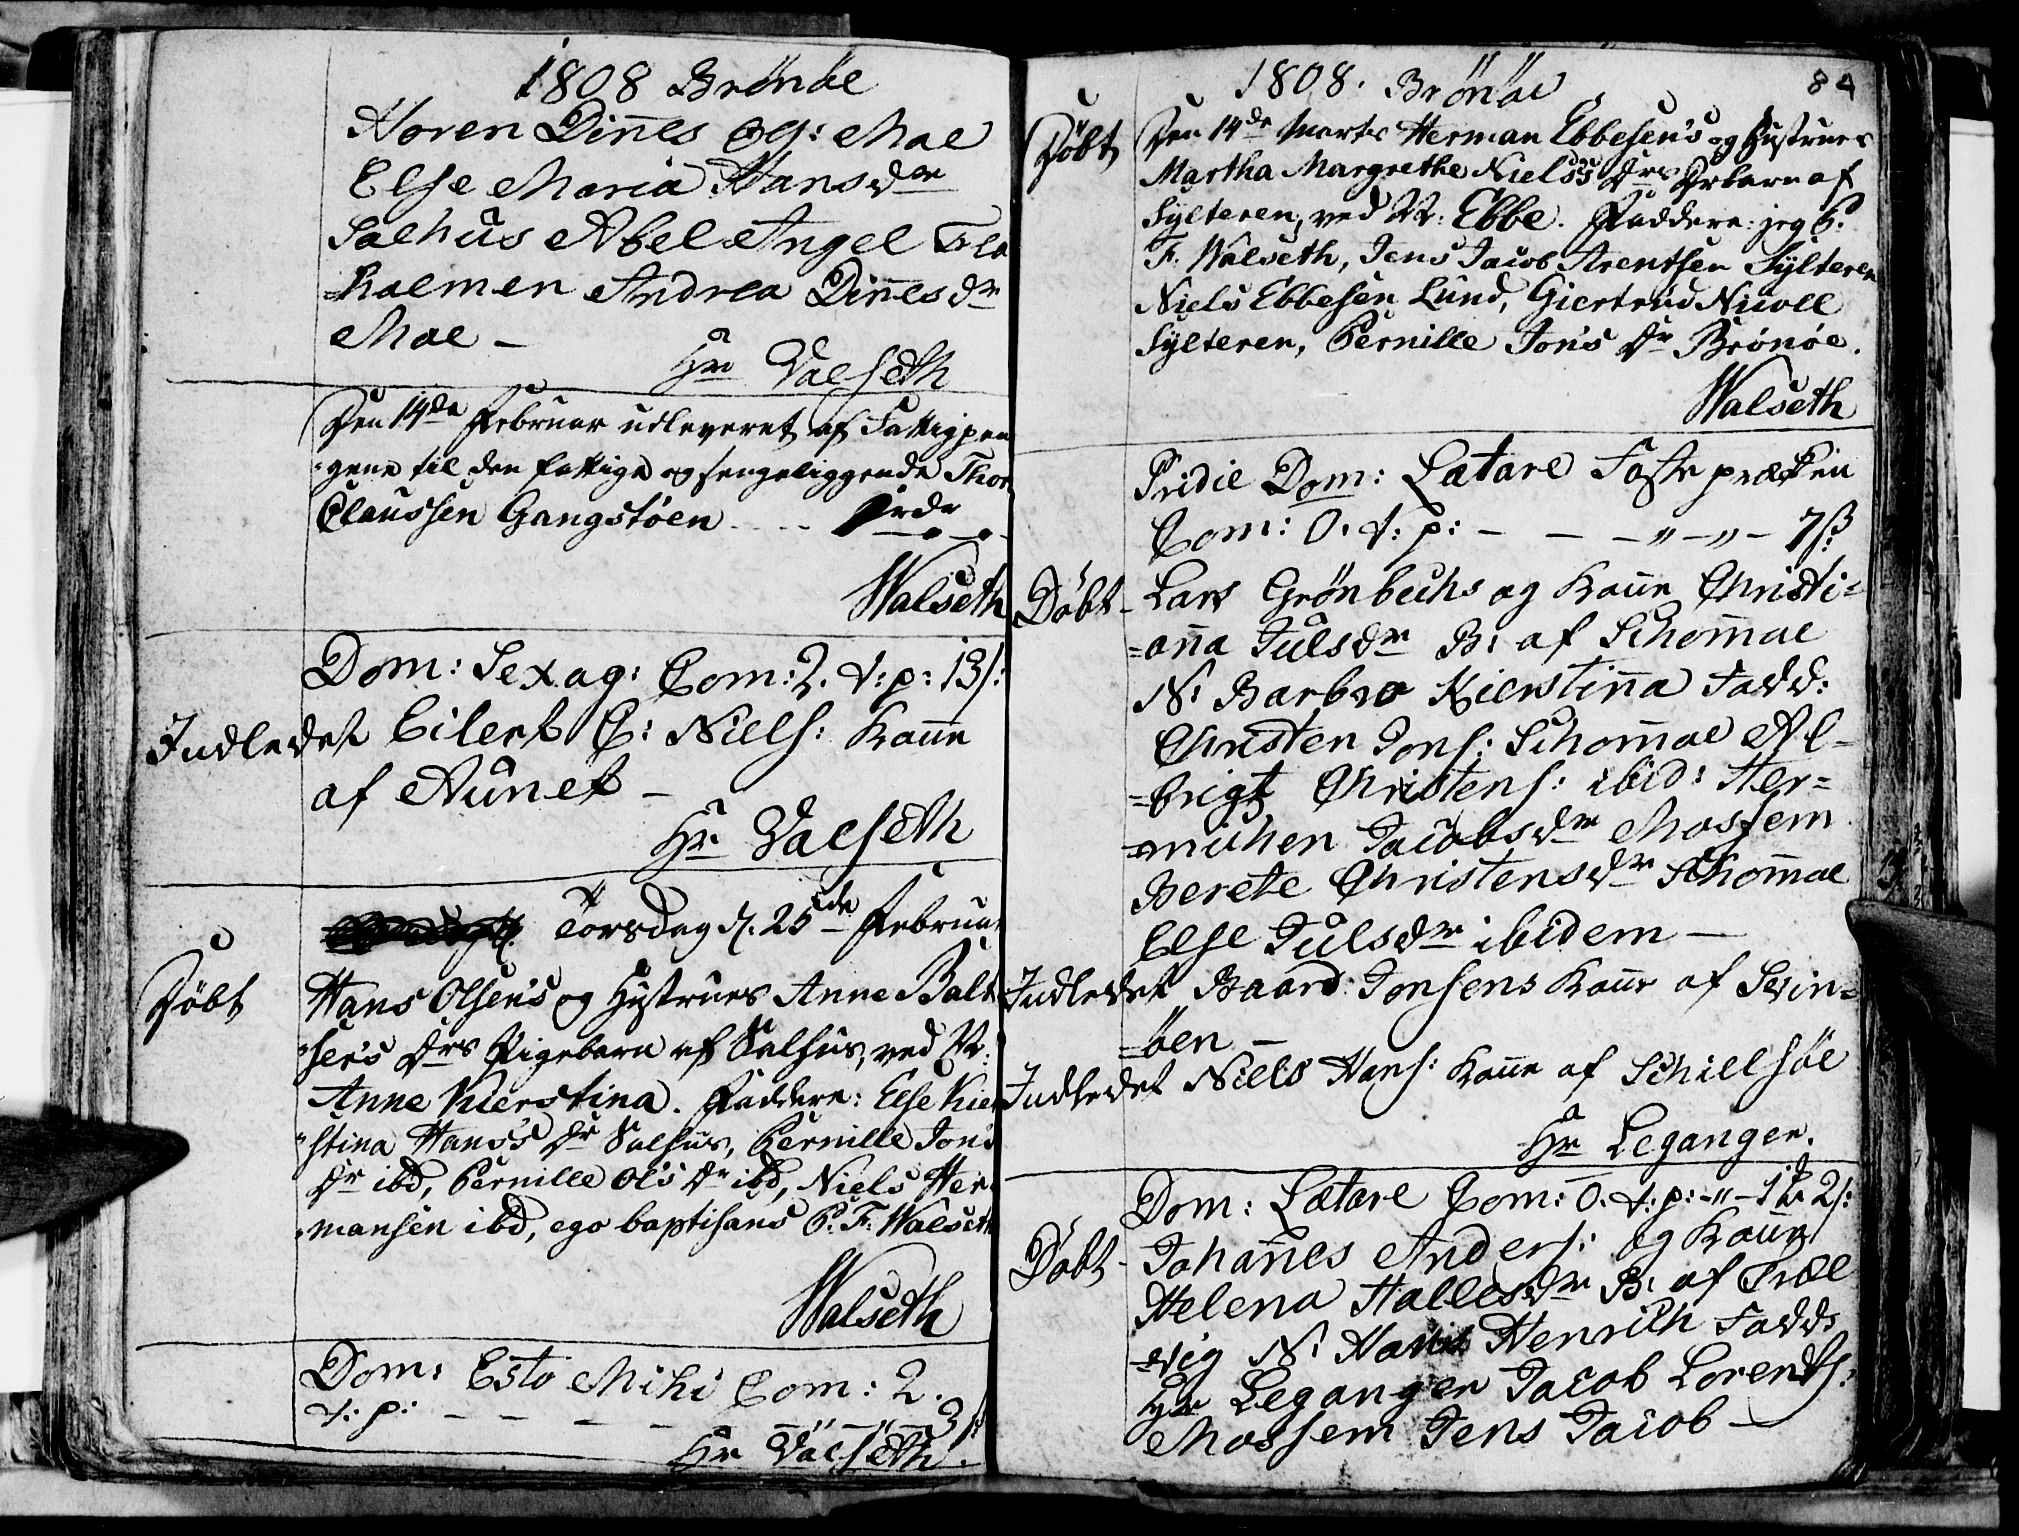 1808 Brönöe
Horen Dines og: Moe
Else Maria Hansdr
Salhus Abel Angel Flo
=kalmen Andrea Dinesdr
Moe –
Hr Valseth
Den 14de Februar udleveret af Fattigpen
gene til den fattige og sengeliggende Thor
Claussen Gangstöen - - - 1 rdr
Walseth
Dom: Sexag: Com: 2. t: p: 13 s:
Indledet Eilert C: Niels: Kone
af Aunet –
Hr Valseth
Torsdag d. 25de Februar
Döbt
Hans Olsen's og Hustrues Anne Balt
ser's Drs Pigebarn af Salhus, ved N:
Anne Kierstina. Faddere: Else Kier
stina Hans's Dr Salhus, Pernille Jon's
Dr ibd, Pernille Ol's Dr ibd, Niels Her
mansen ibd, ego baptisans P. F. Walseth
Walseth
Dom: Esto Mihi Com: 2.
t: p: – – – – – 3 s
Hr Valseth.
1808. Brönöe
84
Döbt
Den 14de Marts Herman Ebbesen's og Hustrues
Martha Margrethe Niels's Drs Drbarn af
Sylteren, ved N: Ebbe. Faddere: jeg P.
F. Walseth, Jens Jacob Arentsen Sylteren
Niels Ebbesen Lund, Giertrud Nicoll
Sylteren, Pernille Jon's Dr Brönöe.
Walseth
Pridie Dom: Lætare Fastepræken
Com: 0. t: p: – – – " – " – 7 ß
Döbt – Lars Grönbechs og Kone Christi=
=anna Julsdr B: af Schomoe
N: Barbro Kierstina Fadd:
Christen Jons: Schomoe Al=
=brigt Christens: ibid: Her=
=michen Jacobsdr Mosjem
Berete Christensdr Schomoe
Else Julsdr ibidem –
Indledet Baard Jonsens Kone af Sein=
=öen –
Indledet Niels Hans: Kone af Schielsöe
Hr Leganger.
Dom: Lætare Com: 0. t: p: – " – 1 k 2 s:
Döbt – Johanes Anders: og Kone
Helena Hallesdr B: af Træl
=vig N: Hans Henrich Fadd:
Hr Leganger Jacob Lorents:
Mosjem Jens Jacob –